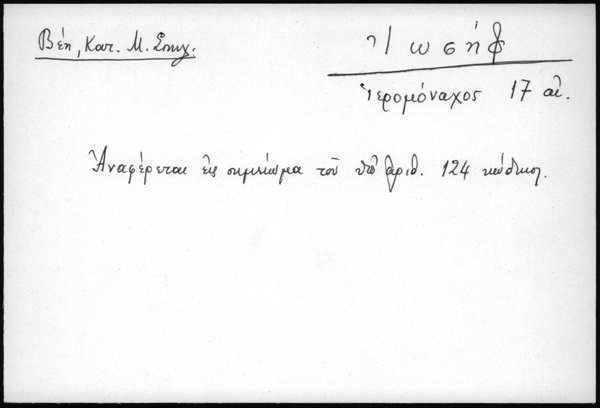 Βέη, Κατ. Μ. Σπηλ.
Ἰωσήφ
Ἱερομόναχος 17 αἰ.
Ἀναφέρεται εἰς σημείωμα τοῦ ὑπ' ἀριθ. 124 κώδικος.